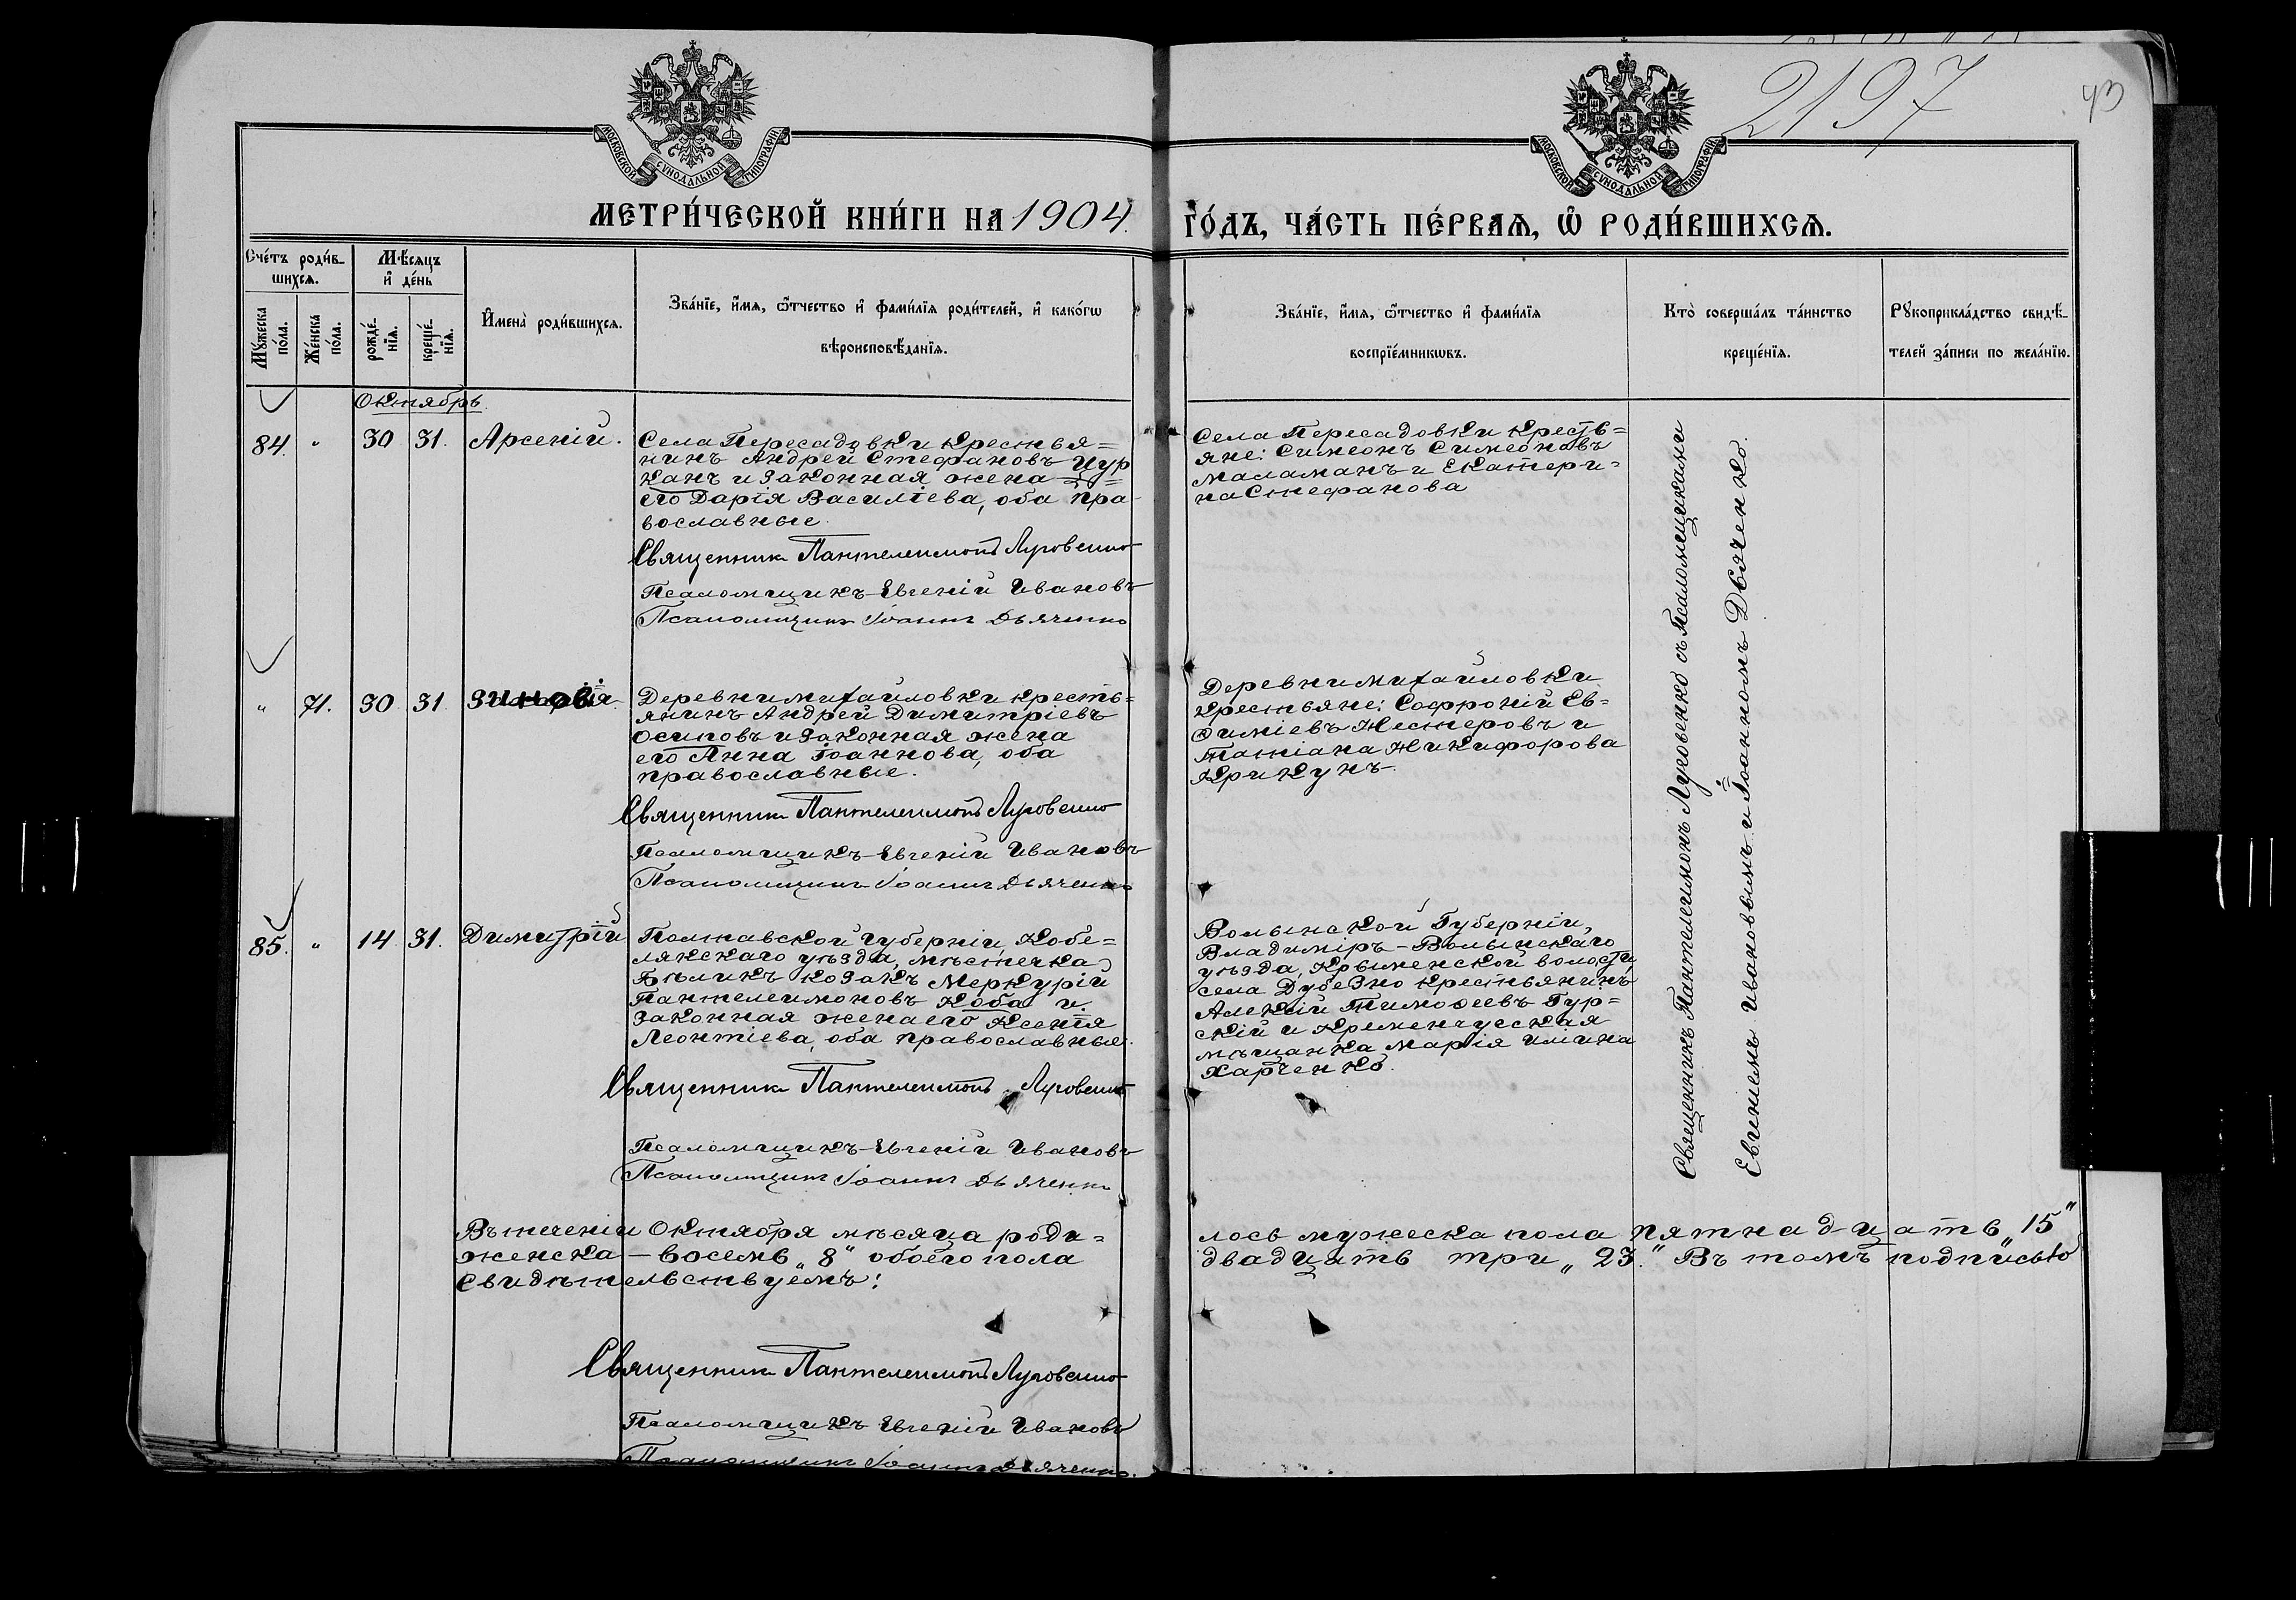 2197
43
МОСКОВСКОЙ СѴНОДАЛЬНОЙ ТИПОГРАФІИ
МОСКОВСКОЙ СѴНОДАЛЬНОЙ ТИПОГРАФІИ
МЕТРИ́ЧЕСКОЙ КНИ́ГИ НА 1904. ГО́ДЪ, ЧА́СТЬ ПЕ́РВАѦ, Ѽ РОДИ́ВШИХСѦ.
Сче́тъ роди́в-
шихсѧ.
Мѣ́сѧцъ
и҆ де́нь
Мꙋ́жеска
по́ла.
Же́нска
по́ла.
рожде́-
нїѧ.
креще́-
нїѧ.
И҆мена̀ роди́вшихсѧ.
Зва́нїе, и҆́мѧ, ѻ҆́тчество и҆ фами́лїѧ роди́телей, и҆ како́гѡ
вѣроисповѣ́данїѧ.
Зва́нїе, и҆́мѧ, ѻ҆́тчество и҆ фами́лїѧ
воспрїе́мникѡвъ.
Кто̀ соверша́лъ та́инство
креще́нїѧ.
Рꙋкоприкла́дство свидѣ́-
телей за́писи по жела́нїю.
Октябрь.
84. " 30 31. Арсеній.
Села Пересадовки крестья=
нинъ Андрей Стефановъ Цур
канъ и законная жена
его Дарія Василіева, оба пра
вославные.
Священникъ Пантелеимонъ Луговенко
Псаломщикъ Евгеній Ивановъ
Псаломщикъ Іоаннъ Дьяченко
Села Пересадовки кресть=
яне: Симеонъ Симеоновъ
Маламанъ и Екатери=
на Стефанова
" 71. 30 31 Зиновія.
Деревни Михайловки кресть=
янинъ Андрей Димитріевъ
Осиповъ и законная жена
его Анна Іоаннова, оба
православные.
Священникъ Пантелеимонъ Луговенко
Псаломщикъ Евгеній Ивановъ
Псаломщикъ Іоаннъ Дьяченко
Деревни Михайловки
крестьяне: Софроній Ев=
ѳиміевъ Нестеровъ и
Татіана Никифорова
Крикунъ.
85. " 14 31. Димитрій
Полтавской губерніи, Кобе=
лякскаго уѣзда, мѣстечка
Бѣликъ козакъ Меркурій
Пантелеимоновъ Коба и
законная жена его Ксенія
Леонтіева, оба православные.
Священникъ Пантелеимонъ Луговенко
Псаломщикъ Евгеній Ивановъ
Псаломщикъ Іоаннъ Дьяченко
Волынской Губерніи,
Владиміръ-Волынскаго
уѣзда, Крыменской волости
села Дубезно крестьянинъ
Алексій Тимоѳеевъ Гур=
скій и Кременчугская
мѣщанка Марія Иліина
Харченко.
Священникъ Пантелеимонъ Луговенко съ псаломщиками
Евгеніемъ Ивановымъ и Іоанномъ Дьяченко.
Въ теченіи Октября мѣсяца роди=лось мужеска пола пятнадцать „15"
женска — восемь „8" обоего пола двадцать три „23." Въ томъ подписью
свидѣтельствуемъ:
Священникъ Пантелеимонъ Луговенко
Псаломщикъ Евгеній Ивановъ
Псаломщикъ Іоаннъ Дьяченко.